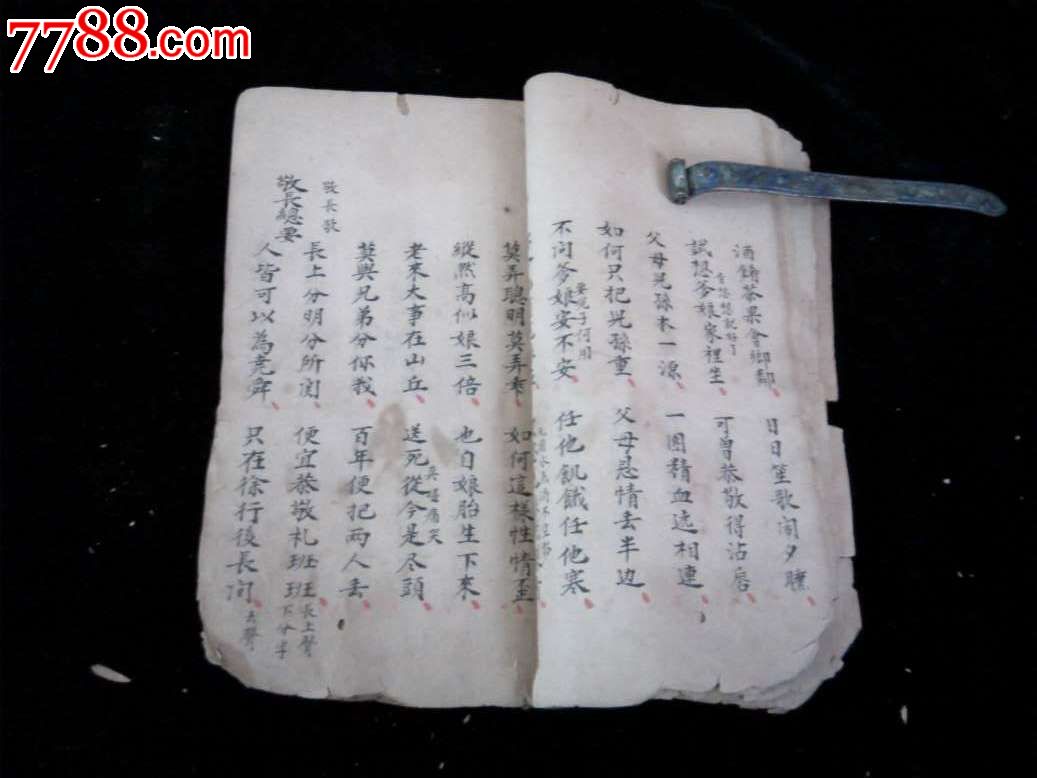 7788.com
酒餚茶果會鄉鄰 日日笙歌鬧夕曛
試認爹娘家裡坐 可曾恭敬得沾唇
父母兒孫本一源 一團精血遞相連
如何只把兒孫重 父母恩情丢半边
不问爹娘安不安 任他飢餓任他寒
要兒子何用
莫弄聰明莫弄乖 如何這樣性情歪
縱然高似娘三倍 也自娘胎生下來
老來大事在山丘 送死從今是尽頭
莫與兄弟分你我 百年便把兩人丢
敬長歌
長上分明分所関 便宜恭敬礼班班
長上聲
下分字
敬長總要
人皆可以為堯舜 只在徐行後長间
去聲